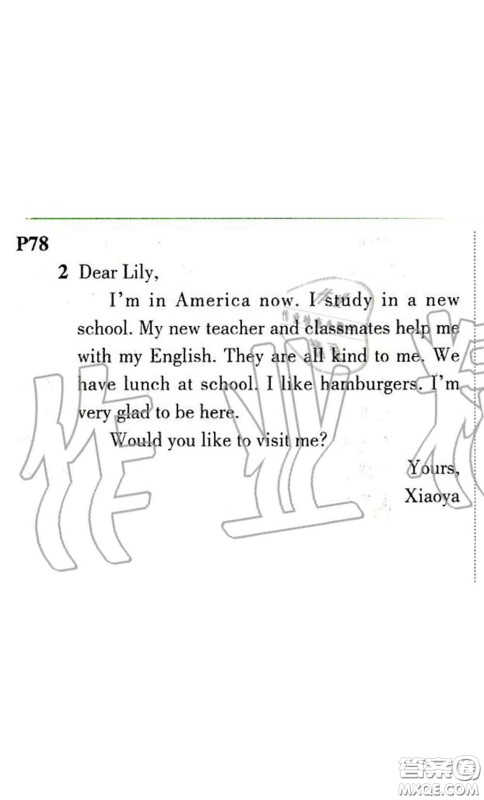 P78
2 Dear Lily,
I'm in America now. I study in a new
school. My new teacher and classmates help me
with my English. They are all kind to me. We
have lunch at school. I like hamburgers. I'm
very glad to be here.
Would you like to visit me?
Yours,
Xiaoya
作业精
答案圈
MXQE.COM